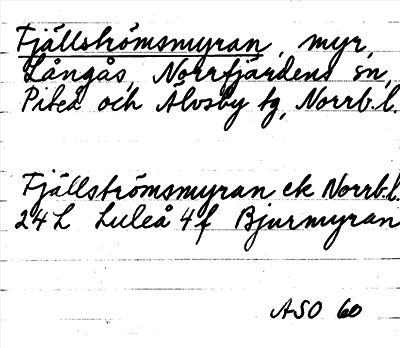 Fjällströmsmyran, myr,
Långås, Norrfjärdens sn,
Piteå och Älvsby tg, Norrb.l.
Fjällströmsmyran ek Norrb.l.
24L Luleå 4f Bjurmyran
ASO 60